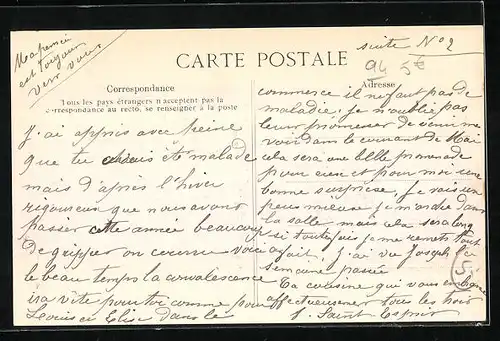 Ma pensée
est toujours
vers vous
suite No 2
94
CARTE POSTALE
Correspondance
Tous les pays étrangers n'acceptent pas la
correspondance au recto, se renseigner à la poste
J'ai appris avec peine
que tu avais été malade
mais d'après l'hiver
rigoureux que nous avons
passer cette année beaucoup
de gripper on comme
le beau temps la convalescence
ira vite pour toi comme pour
Louis et Elise dans le
Adresse
commerce il ne faut pas de
maladie. je n'oublie pas
leur promesse de venir me
voir dans le courant de Mai
cela sera une belle promenade
pour eux et pour moi une
bonne surprise, je vais un
peu mieux je m'arde dans
la salle mais cela sera long
si toutefois je me remets tout
à fait. J'ai vu Joseph la
semaine passée
Ta cousine qui vous embrasse
affectueusement tous les trois
f. Saint Esprit